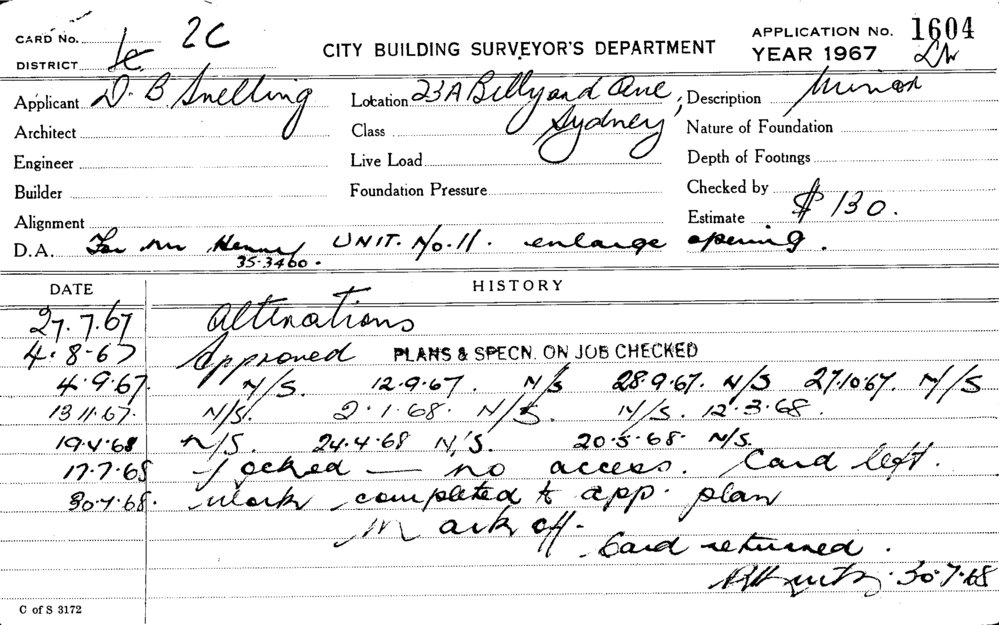 CARD No. 2C
CITY BUILDING SURVEYOR'S DEPARTMENT
APPLICATION No. 1604
DISTRICT
YEAR 1967
Applicant D. B. Snelling Location 23A Billyard Ave, Sydney Description Minor
Architect Class Nature of Foundation
Engineer Live Load Depth of Footings
Builder Foundation Pressure Checked by
Alignment Estimate $130.
D.A. For Mr Henry UNIT. No. 11. enlarge opening.
35-3460.
DATE HISTORY
27.7.67 Alterations
4.8-67 Approved PLANS & SPECN. ON JOB CHECKED
4.9.67. N/S. 12.9.67. N/S 28.9.67. N/S 27.10.67. N/S
13.11.67. N/S. 2.1.68. N/S. N/S. 12.3.68.
19.4.68 N/S. 24.4.68 N/S. 20.5.68. N/S.
17.7.68 Locked — no access. Card left.
30.7.68. Work completed to app. plan
Mark off.
Card returned.
30.7.68
C of S 3172